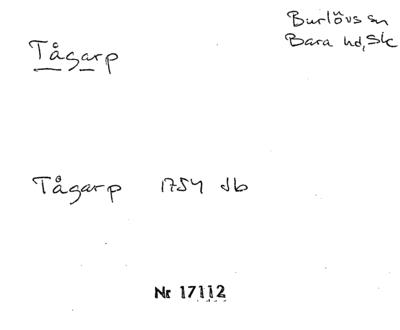 Burlövs sn
Bara hd, Sk
Tågarp
Tågarp 1754 Jb
Nr 17112